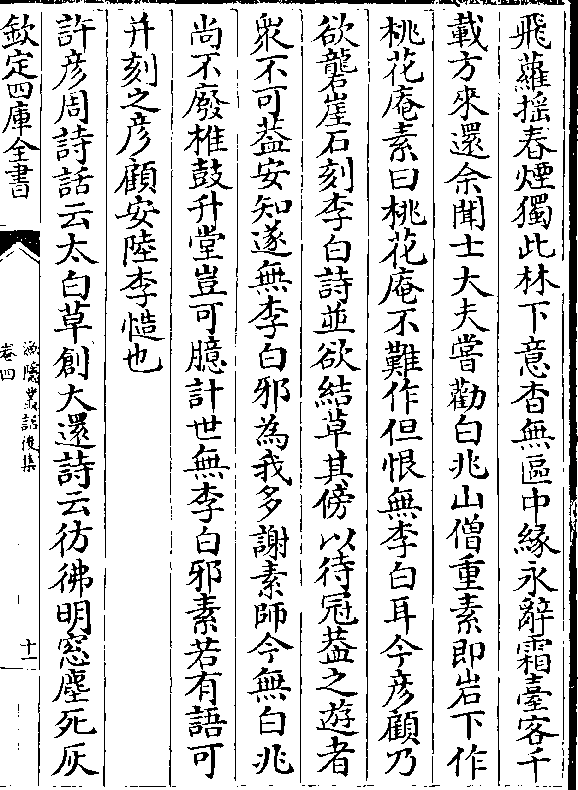 飛蘿揺春煙獨此林下意杳無區中縁永辭霜臺客千
載方來還余聞士大夫嘗勸白兆山僧重素即岩下作
桃花庵素曰桃花庵不難作但恨無李白耳今彦顧乃
欲礱崖石刻李白詩並欲結草其傍以待冠葢之遊者
衆不可葢安知遂無李白邪為我多謝素師今無白兆
尚不廢椎鼓升堂豈可臆計世無李白邪素若有語可
并刻之彦顧安陸李慥也
許彦周詩話云太白草創大還詩云彷彿明窓塵死灰
欽定四庫全書
漁隱叢話後集
卷四
十一